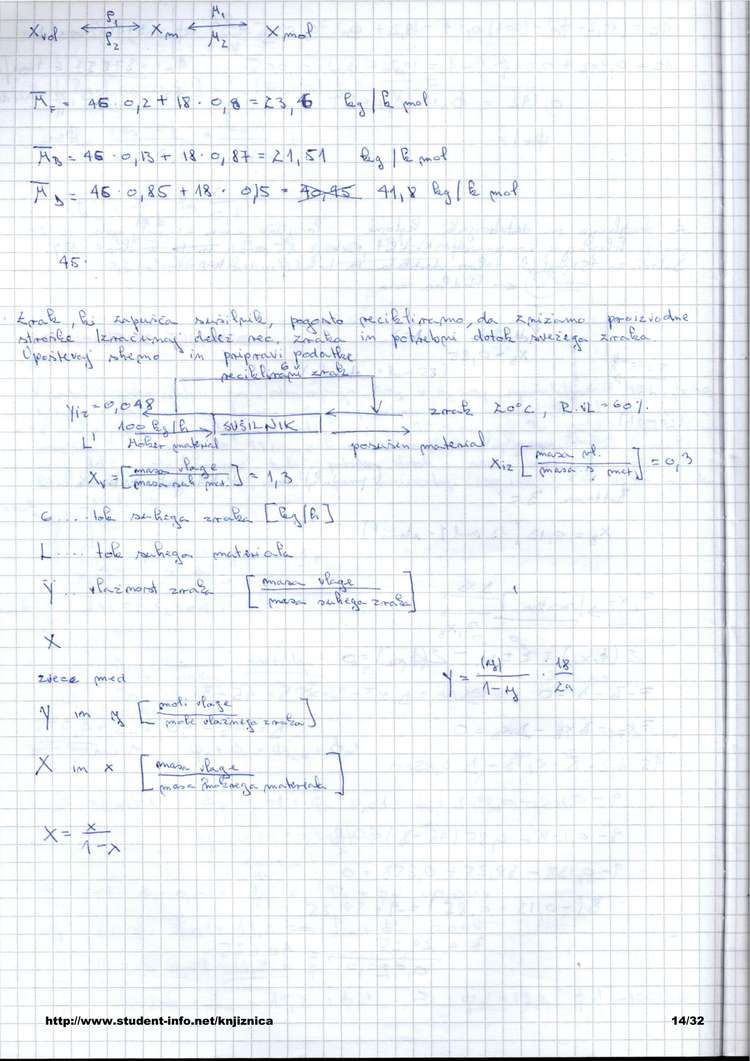 X vol ⟷ (ρ₁ / ρ₂) X m ⟷ (M₁ / M₂) X mol
M̄F = 46 · 0,2 + 18 · 0,8 = 23,6 kg/k mol
M̄B = 46 · 0,13 + 18 · 0,87 = 21,51 kg/k mol
M̄D = 46 · 0,85 + 18 · 0,15 = 40,45 41,8 kg/k mol
45.
Zrak, ki zapušča sušilnik, pogosto recikliramo, da znižamo proizvodne
stroške. Izračunaj delež rec. zraka in potrebni dotok svežega zraka.
Upoštevaj shemo in pripravi podatke
G
reciklirani zrak
Yiz = 0,048
zrak 20°C, R.VL = 60%
100 kg/h SUŠILNIK
L' Moker material
posušen material
Xv = [masa vlage / masa suh mat.] = 1,3
Xiz [masa vl. / masa s. mat.] = 0,3
G .... tok suhega zraka [kg/h]
L .... tok suhega materiala
Y .. vlažnost zraka [masa vlage / masa suhega zraka]
X
zveze med
Y = (y) / 1-y · 18 / 29
Y in y [moli vlage / mole vlažnega zraka]
X in x [masa vlage / masa vlažnega materiala]
X = x / 1-x
http://www.student-info.net/knjiznica 14/32